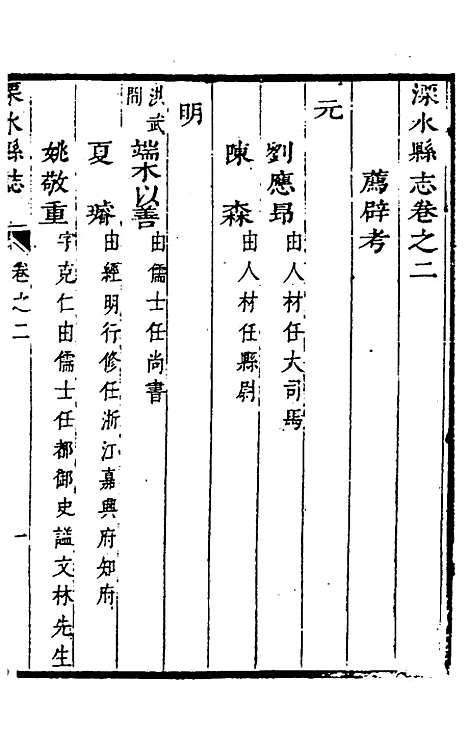 溧水縣志卷之二
薦辟考
元
劉應昂 由人材任大司馬
陳森 由人材任縣尉
明
洪武間 端木以善 由儒士任尚書
夏璿 由經明行修任浙江嘉興府知府
姚敬重 字克仁由儒士任都御史謚文林先生
栗水縣志 卷之二 一